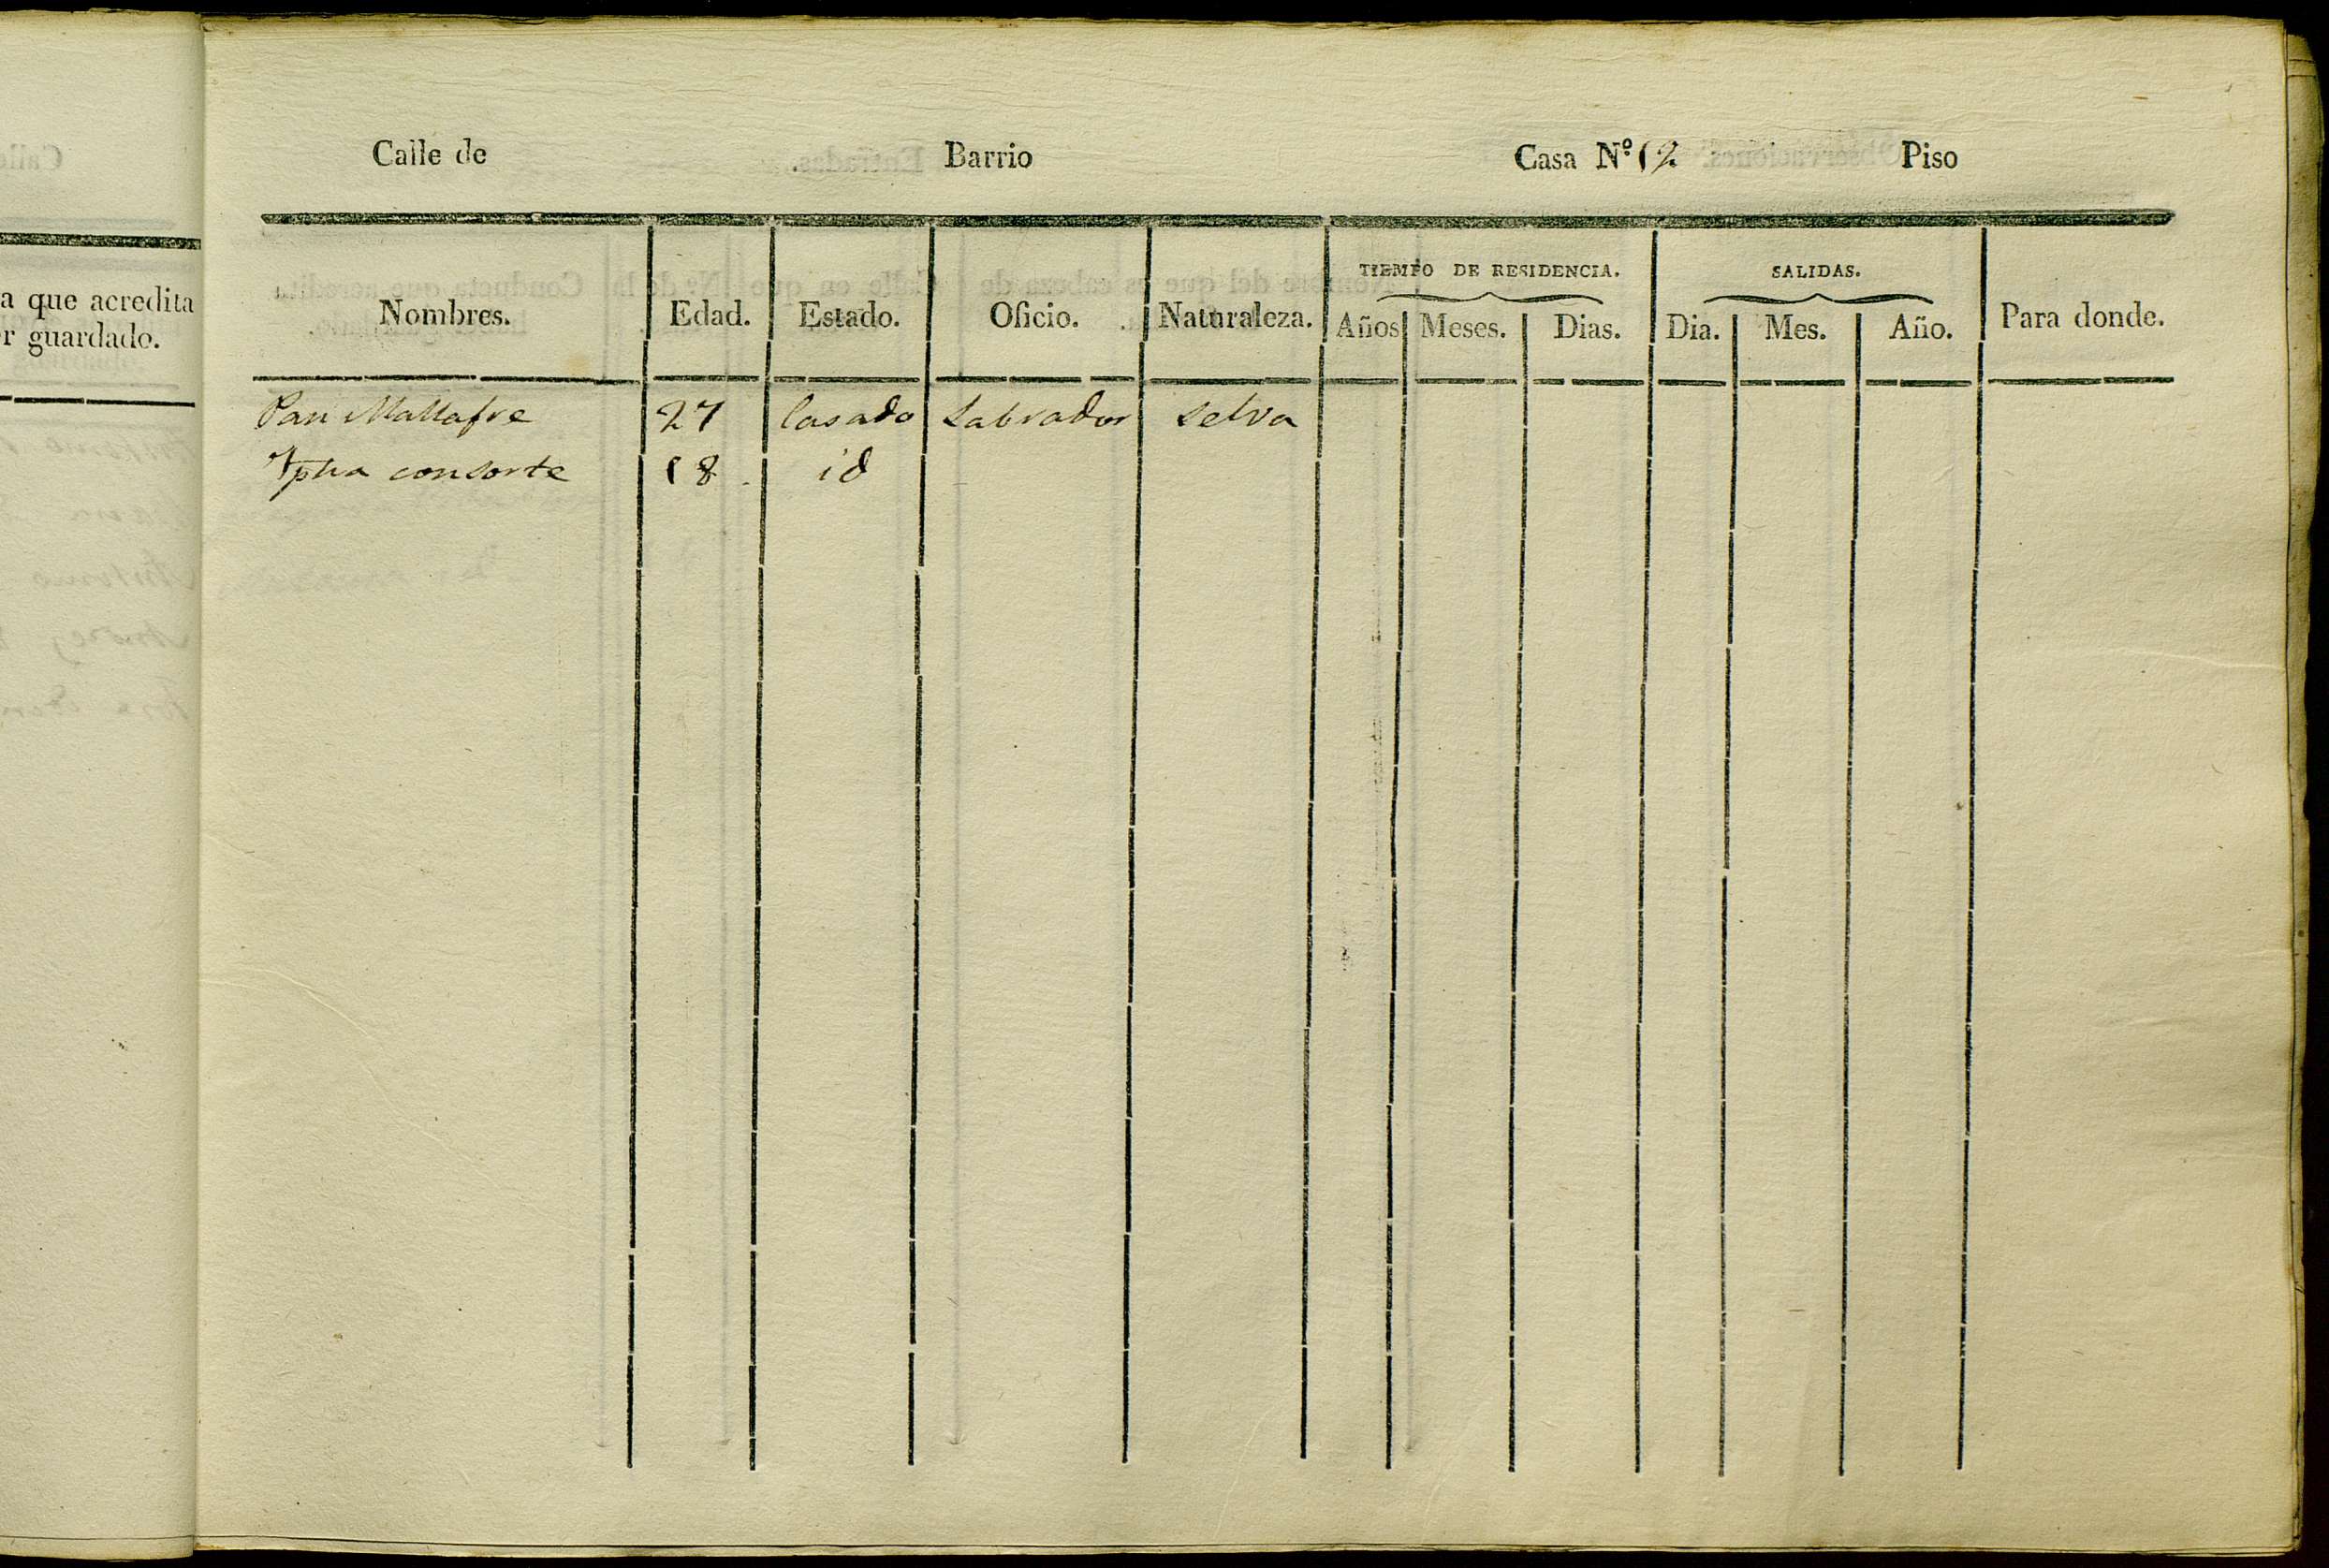 a que acredita
r guardado.
Calle de Barrio Casa Nº 12 Piso
TIEMPO DE RESIDENCIA. SALIDAS.
Nombres. Edad. Estado. Oficio. Naturaleza. Años Meses. Dias. Dia. Mes. Año. Para donde.
Pau Mallafre 27 Casado Labrador Selva
consorte 18 id